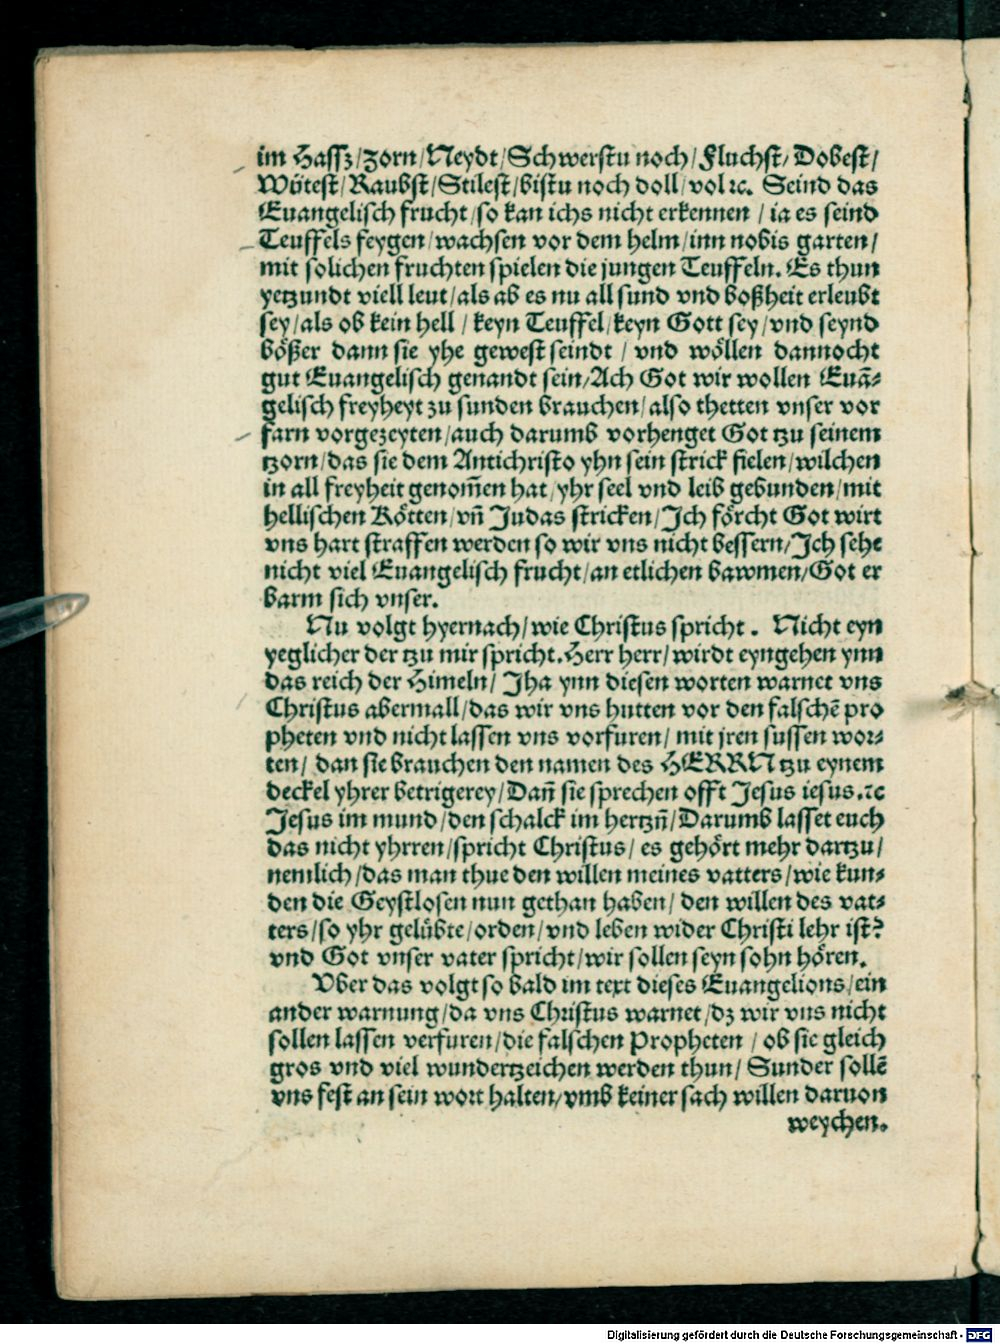 im Hassz/zorn/Neydt/Schwerstu noch/Fluchst/Dobest/
Wötest/Raubst/Stilest/bistu noch doll/vol ⁊c. Seind das
Euangelisch frucht/so kan ichs nicht erkennen / ia es seind
Teuffels feygen/wachsen vor dem helm/inn nobis garten/
mit solichen fruchten spielen die jungen Teuffeln. Es thun
yetzundt viell leut/als ab es nu all sund vnd boßheit erleubt
sey/als ob kein hell / keyn Teuffel/keyn Gott sey/vnd seynd
bößer dann sie yhe gewest seindt / vnd wöllen dannocht
gut Euangelisch genandt sein/Ach Got wir wollen Euā⸗
gelisch freyheyt zu sunden brauchen/also thetten vnser vor
farn vorgezeyten/auch darumb vorhenget Got tzu seinem
tzorn/das sie dem Antichristo yhn sein strick fielen/wilchen
in all freyheit genom̄en hat/yhr seel vnd leib gebunden/mit
hellischen Kötten/vn̄ Judas stricken/Ich förcht Got wirt
vns hart straffen werden so wir vns nicht bessern/Ich sehe
nicht viel Euangelisch frucht/an etlichen bawmen/Got er
barm sich vnser.
Nu volgt hyernach/wie Christus spricht. Nicht eyn
yeglicher der tzu mir spricht.Herr herr/wirdt eyngehen ynn
das reich der Himeln/ Jha ynn diesen worten warnet vns
Christus abermall/das wir vns hutten vor den falschē pro
pheten vnd nicht lassen vns vorfuren/ mit jren sussen wor⸗
ten/ dan sie brauchen den namen des HERRN tzu eynem
deckel yhrer betrigerey/Dan̄ sie sprechen offt Jesus iesus.⁊c
Jesus im mund/den schalck im hertzn̄/Darumb lasset euch
das nicht yhrren/spricht Christus/ es gehört mehr dartzu/
nemlich/das man thue den willen meines vatters/wie kun⸗
den die Geystlosen nun gethan haben/ den willen des vat⸗
ters/so yhr gelübte/orden/vnd leben wider Christi lehr ist?
vnd Got vnser vater spricht/wir sollen seyn sohn hören.
Vber das volgt so bald im text dieses Euangelions/ein
ander warnung/da vns Christus warnet/dz wir vns nicht
sollen lassen verfuren/die falschen Propheten / ob sie gleich
gros vnd viel wundertzeichen werden thun/ Sunder sollē
vns fest an sein wort halten/vmb keiner sach willen daruon
weychen.
Digitalisierung gefördert durch die Deutsche Forschungsgemeinschaft - DFG